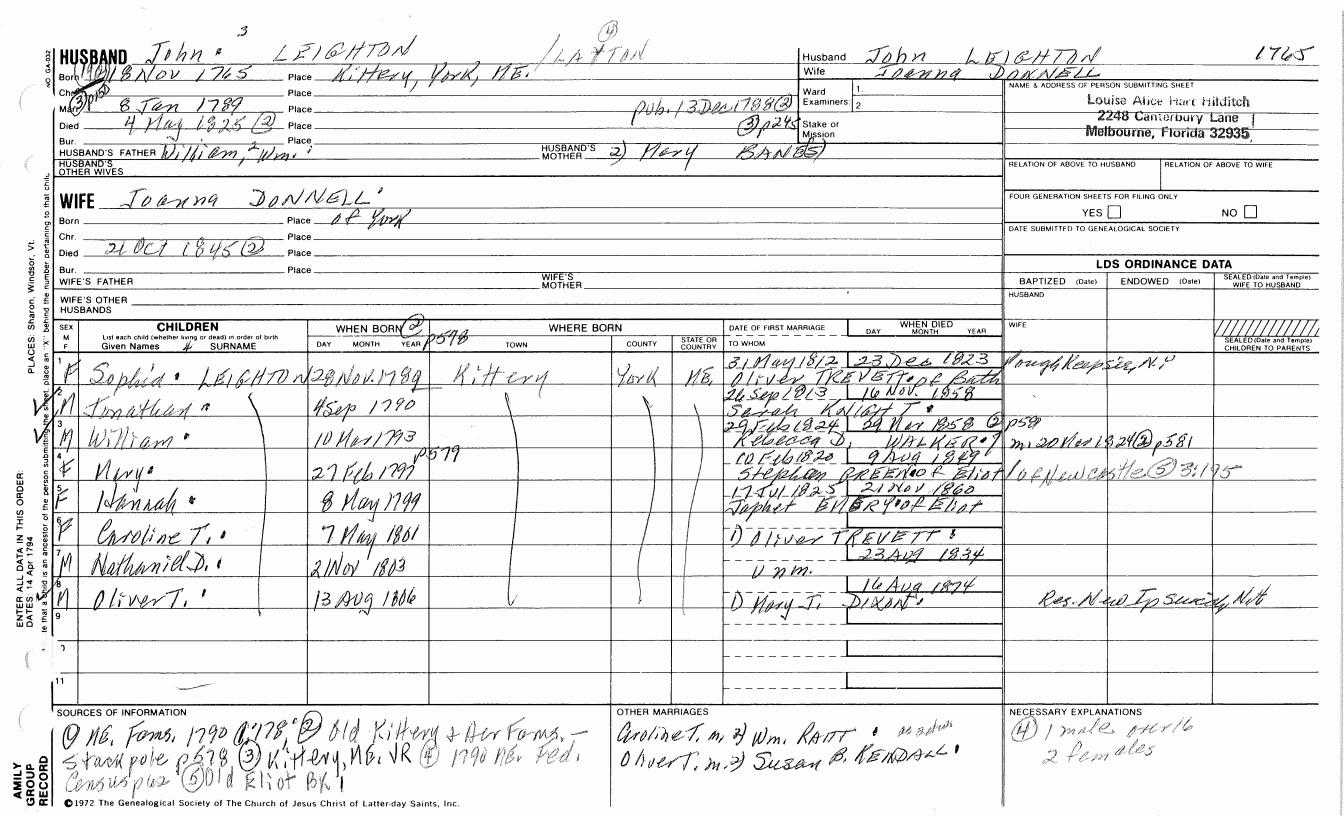 3
HUSBAND John LEIGHTON /LAYTON ④
Born 18 Nov 1765 Place Kittery, York, ME.
Chr. ③ p150 Place
Mar. 8 Jan 1789 Place pub. 13 Dec 1788 ③
Died 4 May 1825 ② Place ③ p245
Bur. Place
HUSBAND'S FATHER William, ² Wm. HUSBAND'S MOTHER 2) Mary BANE(S)
HUSBAND'S OTHER WIVES
Husband John LEIGHTON 1765
Wife Joanna DONNELL
Ward Examiners 1. 2.
Stake or Mission
NAME & ADDRESS OF PERSON SUBMITTING SHEET
Louise Alice Hart Hilditch
2248 Canterbury Lane
Melbourne, Florida 32935
RELATION OF ABOVE TO HUSBAND RELATION OF ABOVE TO WIFE
FOUR GENERATION SHEETS FOR FILING ONLY
YES NO
DATE SUBMITTED TO GENEALOGICAL SOCIETY
WIFE Joanna DONNELL
Born Place of York
Chr. Place
Died 21 Oct 1845 ② Place
Bur. Place
WIFE'S FATHER WIFE'S MOTHER
WIFE'S OTHER HUSBANDS
LDS ORDINANCE DATA
BAPTIZED (Date) ENDOWED (Date) SEALED (Date and Temple) WIFE TO HUSBAND
HUSBAND
WIFE
SEALED (Date and Temple) CHILDREN TO PARENTS
SEX M F CHILDREN WHEN BORN ② p578 WHERE BORN DATE OF FIRST MARRIAGE WHEN DIED
List each child (whether living or dead) in order of birth
Given Names SURNAME DAY MONTH YEAR TOWN COUNTY STATE OR COUNTRY TO WHOM DAY MONTH YEAR
1 F Sophia LEIGHTON 28 Nov. 1789 Kittery York ME. 31 May 1812 23 Dec 1823 Poughkeepsie, N.Y
Oliver TREVETT of Bath
2 M Jonathan 4 Sep 1790 26 Sep 1813 16 Nov. 1858
Sarah KNIGHT T.
3 M William 10 Mar 1793 29 Feb 1824 29 Mar 1858 ② p58
Rebecca D. WALKER m. 20 Mar 1824 ② p581
4 F Mary 27 Feb 1797 p579 10 Feb 1820 9 Aug 1849
Stephen GREEN of Eliot / of Newcastle ⑤ 3:195
5 F Hannah 8 May 1799 17 Jul 1825 21 Nov 1860
Japhet EMERY of Eliot
6 F Caroline T. 7 May 1801 1) Oliver TREVETT
7 M Nathaniel D. 21 Nov 1803 unm. 23 Aug 1834
8 M Oliver T. 13 Aug 1806 1) Mary J. DIXON 16 Aug 1874 Res. New
9
11
SOURCES OF INFORMATION
① NE. Fams. 1790 1:178, ② Old Kittery & Her Fams. –
Stackpole p578 ③ Kittery, ME. VR ④ 1790 ME. Fed.
Census p62 ⑤ Old Eliot Bk 1
OTHER MARRIAGES
Caroline T. m. 2) Wm. RAITT
Oliver T. m. 2) Susan B. KENDALL
NECESSARY EXPLANATIONS
④ 1 male over 16
2 females
©1972 The Genealogical Society of The Church of Jesus Christ of Latter-day Saints, Inc.
AMILY GROUP RECORD
ENTER ALL DATA IN THIS ORDER:
DATES: 14 Apr 1794
PLACES: Sharon, Windsor, Vt.
te that a child is an ancestor of the person submitting the sheet, place an "X" behind the number pertaining to that child.
NO GA-032